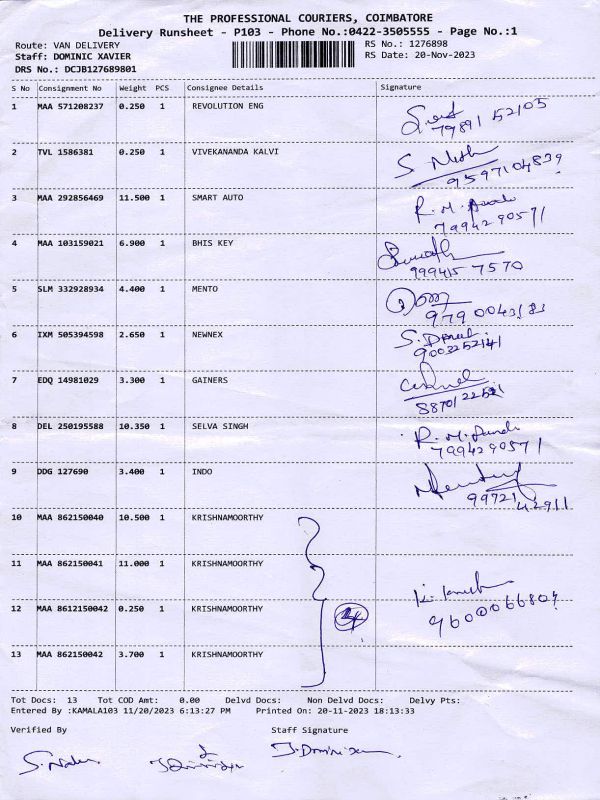 THE PROFESSIONAL COURIERS, COIMBATORE
Delivery Runsheet - P103 - Phone No.:0422-3505555 - Page No.:1
Route: VAN DELIVERY
RS No.: 1276898
Staff: DOMINIC XAVIER
RS Date: 20-Nov-2023
DRS No.: DCJB127689801
S No Consignment No Weight PCS Consignee Details Signature
1 MAA 571208237 0.250 1 REVOLUTION ENG
2 TVL 1586381 0.250 1 VIVEKANANDA KALVI
9597104839
3 MAA 292856469 11.500 1 SMART AUTO
R. M.
7994290571
4 MAA 103159021 6.900 1 BHIS KEY
9994157570
5 SLM 332928934 4.400 1 MENTO
6 IXM 505394598 2.650 1 NEWNEX
9003252141
7 EDQ 14981029 3.300 1 GAINERS
8 DEL 250195588 10.350 1 SELVA SINGH
R. M.
7994290571
9 DDG 127690 3.400 1 INDO
99721 42911
10 MAA 862150040 10.500 1 KRISHNAMOORTHY
11 MAA 862150041 11.000 1 KRISHNAMOORTHY
12 MAA 8612150042 0.250 1 KRISHNAMOORTHY
4
13 MAA 862150042 3.700 1 KRISHNAMOORTHY
Tot Docs: 13 Tot COD Amt: 0.00 Delvd Docs: Non Delvd Docs: Delvy Pts:
Entered By :KAMALA103 11/20/2023 6:13:27 PM Printed On: 20-11-2023 18:13:33
Verified By Staff Signature